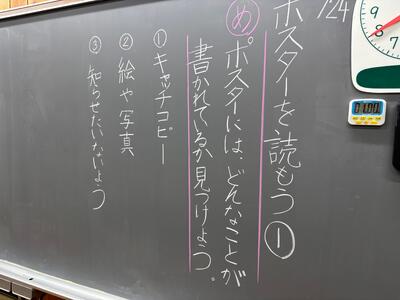 /24
ポスターを読もう①
め ポスターには、どんなことが
書かれているか見つけよう。
①キャッチコピー
②絵や写真
③知らせたいないよう